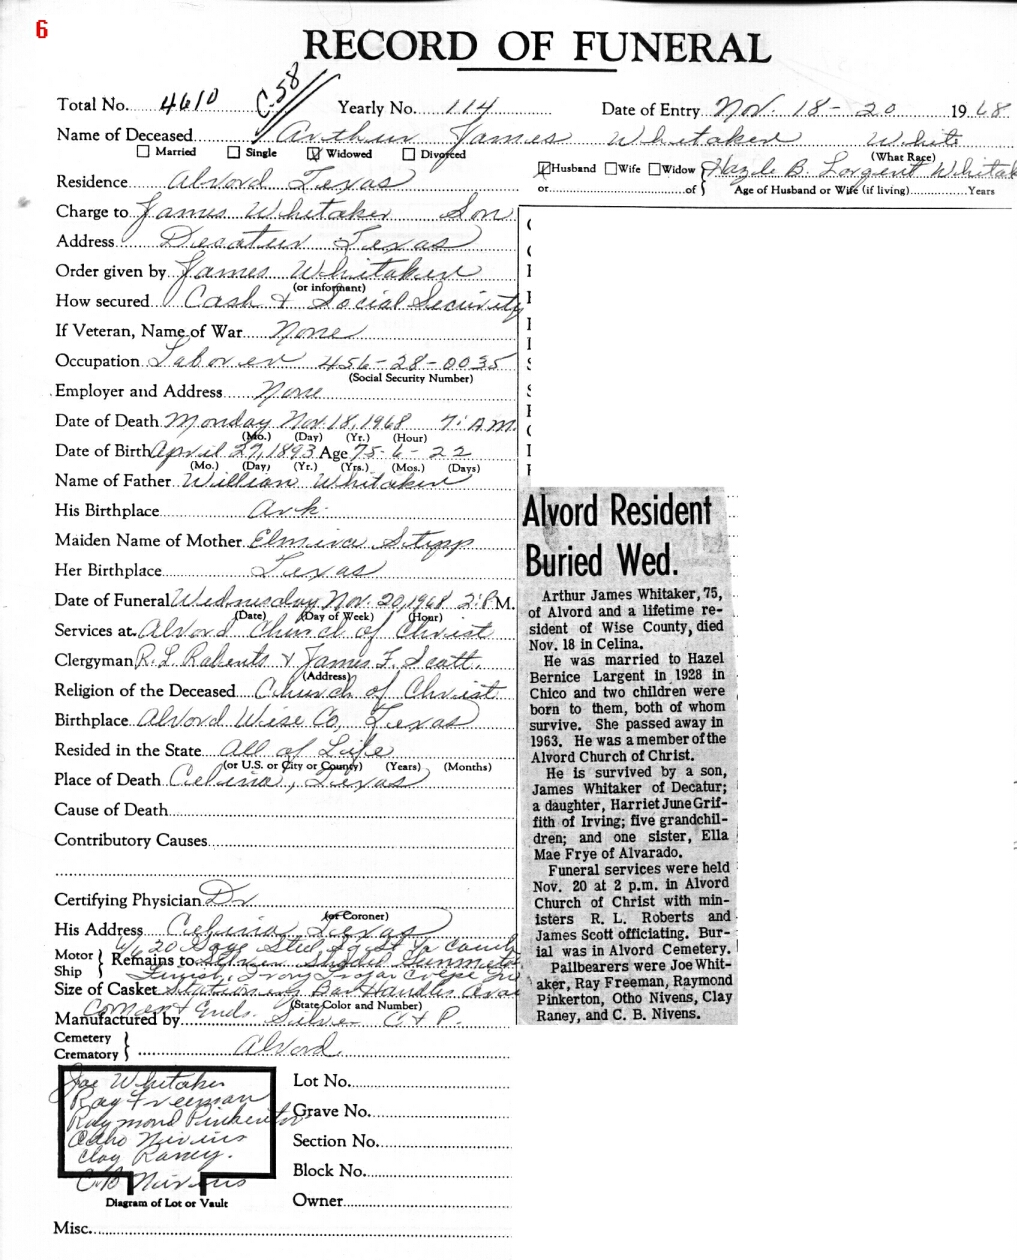 6
RECORD OF FUNERAL
C-58
Total No. 4610 Yearly No. 114 Date of Entry Nov. 18-20 1968
Name of Deceased Arthur James Whitaker White
(What Race)
Married Single Widowed Divorced
Husband Wife Widow Hazle B. Largent Whitak
or of Age of Husband or Wife (if living) Years
Residence Alvord Texas
Charge to James Whitaker Son
Address Decatur Texas
Order given by James Whitaker
(or informant)
How secured Cash & Social Security
If Veteran, Name of War None
Occupation Laborer 456-28-0035
(Social Security Number)
Employer and Address None
Date of Death Monday Nov. 18, 1968 7: A.M.
(Mo.) (Day) (Yr.) (Hour)
Date of Birth April 27, 1893 Age 75-6-22
(Mo.) (Day) (Yr.) (Yrs.) (Mos.) (Days)
Name of Father William Whitaker
His Birthplace Ark.
Maiden Name of Mother Elmira Stipp
Her Birthplace Texas
Date of Funeral Wednesday Nov. 20, 1968 2: P.M.
(Date) (Day of Week) (Hour)
Services at Alvord Church of Christ
Clergyman R. L. Roberts & James F. Scott.
(Address)
Religion of the Deceased Church of Christ
Birthplace Alvord Wise Co. Texas
Resided in the State All of Life
(or U.S. or City or County) (Years) (Months)
Place of Death Celina, Texas
Cause of Death
Contributory Causes
Certifying Physician Dr
(or Coroner)
His Address Celina Texas
Motor Ship Remains to
6/6 20 Gage Steel Sq
Silver Shaded Gunmetal
Finish, Ivory Trojan Crepe
Size of Casket Stationary Bar Handles
(State Color and Number)
Corners & Ends. Silver C & P.
Manufactured by
Cemetery
Crematory Alvord
Joe Whitaker
Ray Freeman
Raymond Pinkerton
Otho Nivens
Clay Raney.
C.B. Nivens
Diagram of Lot or Vault
Lot No.
Grave No.
Section No.
Block No.
Owner
Misc.
Alvord Resident
Buried Wed.
Arthur James Whitaker, 75,
of Alvord and a lifetime re-
sident of Wise County, died
Nov. 18 in Celina.
He was married to Hazel
Bernice Largent in 1928 in
Chico and two children were
born to them, both of whom
survive. She passed away in
1963. He was a member of the
Alvord Church of Christ.
He is survived by a son,
James Whitaker of Decatur;
a daughter, Harriet June Grif-
fith of Irving; five grandchil-
dren; and one sister, Ella
Mae Frye of Alvarado.
Funeral services were held
Nov. 20 at 2 p.m. in Alvord
Church of Christ with min-
isters R. L. Roberts and
James Scott officiating. Bur-
ial was in Alvord Cemetery.
Pallbearers were Joe Whit-
aker, Ray Freeman, Raymond
Pinkerton, Otho Nivens, Clay
Raney, and C. B. Nivens.